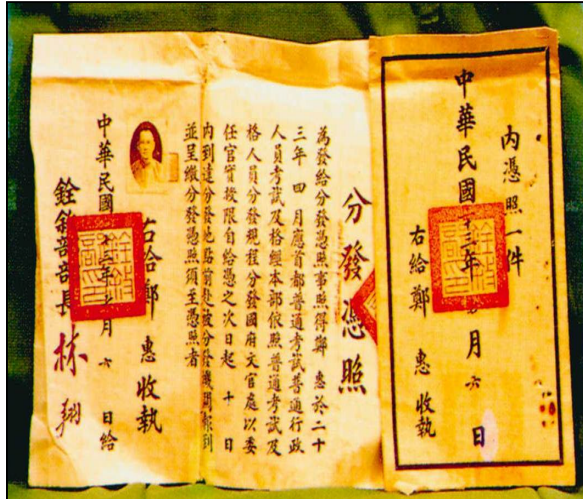 內憑照一件
中華民國二十三年 月六日
右給鄭 惠收執
分發憑照
為發給分發憑照事照得鄭 惠於二十
三年四月應首都普通考試普通行政
人員考試及格經本部依照普通考試及
格人員分發規程分發國府文官處以委
任官實授限自給憑之次日起 十 日
內到達分發地點前赴被分發機關報到
並呈繳分發憑照須至憑照者
右給鄭 惠收執
中華民國二十三年 月六日給
銓敘部部長 林翔